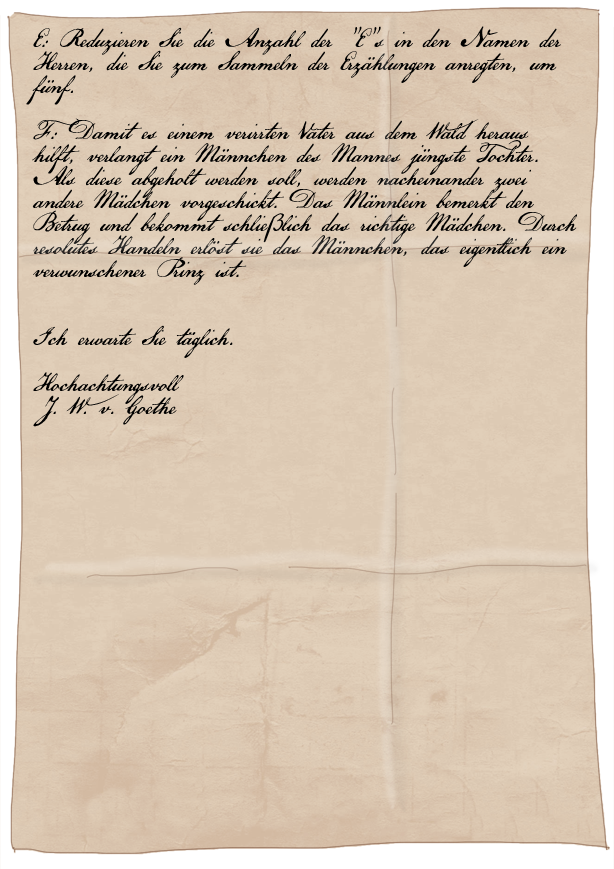 E: Reduzieren Sie die Anzahl der "E"s in den Namen der
Herren, die Sie zum Sammeln der Erzählungen anregten, um
fünf.
F: Damit es einem verirrten Vater aus dem Wald heraus
hilft, verlangt ein Männchen des Mannes jüngste Tochter.
Als diese abgeholt werden soll, werden nacheinander zwei
andere Mädchen vorgeschickt. Das Männlein bemerkt den
Betrug und bekommt schließlich das richtige Mädchen. Durch
resolutes Handeln erlöst sie das Männchen, das eigentlich ein
verwunschener Prinz ist.
Ich erwarte Sie täglich.
Hochachtungsvoll
J. W. v. Goethe